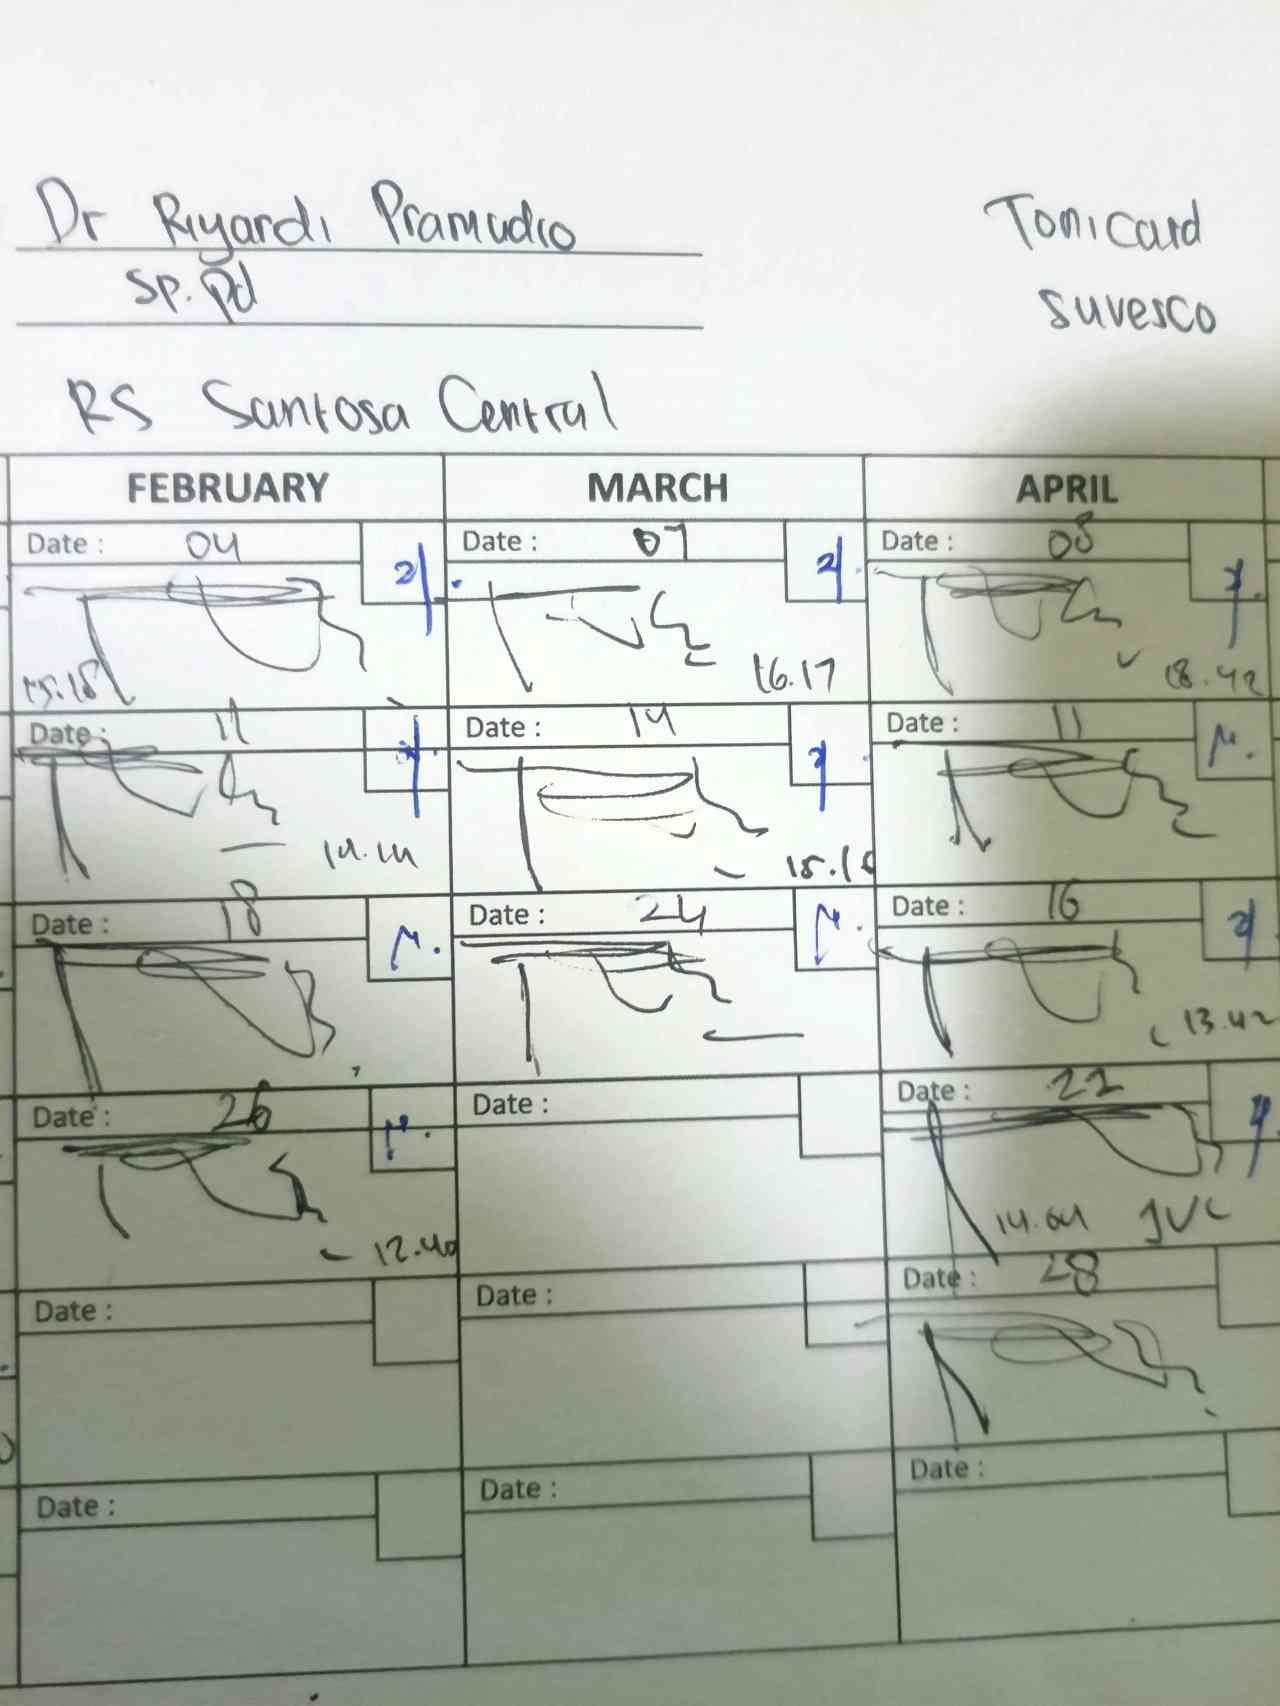 Dr Riyardi Pramudio
Sp. Pd
Tonicard
Suvesco
RS Santosa Central
FEBRUARY MARCH APRIL
Date : 04 Date : 07 Date : 08
15.18 16.17 18.42
Date : 11 Date : 14 Date : 11
14.14
Date : 18 Date : 24 Date : 16
13.42
Date : 26 Date : Date : 22
12.40 14.04
Date : Date : Date : 28
Date : Date : Date :